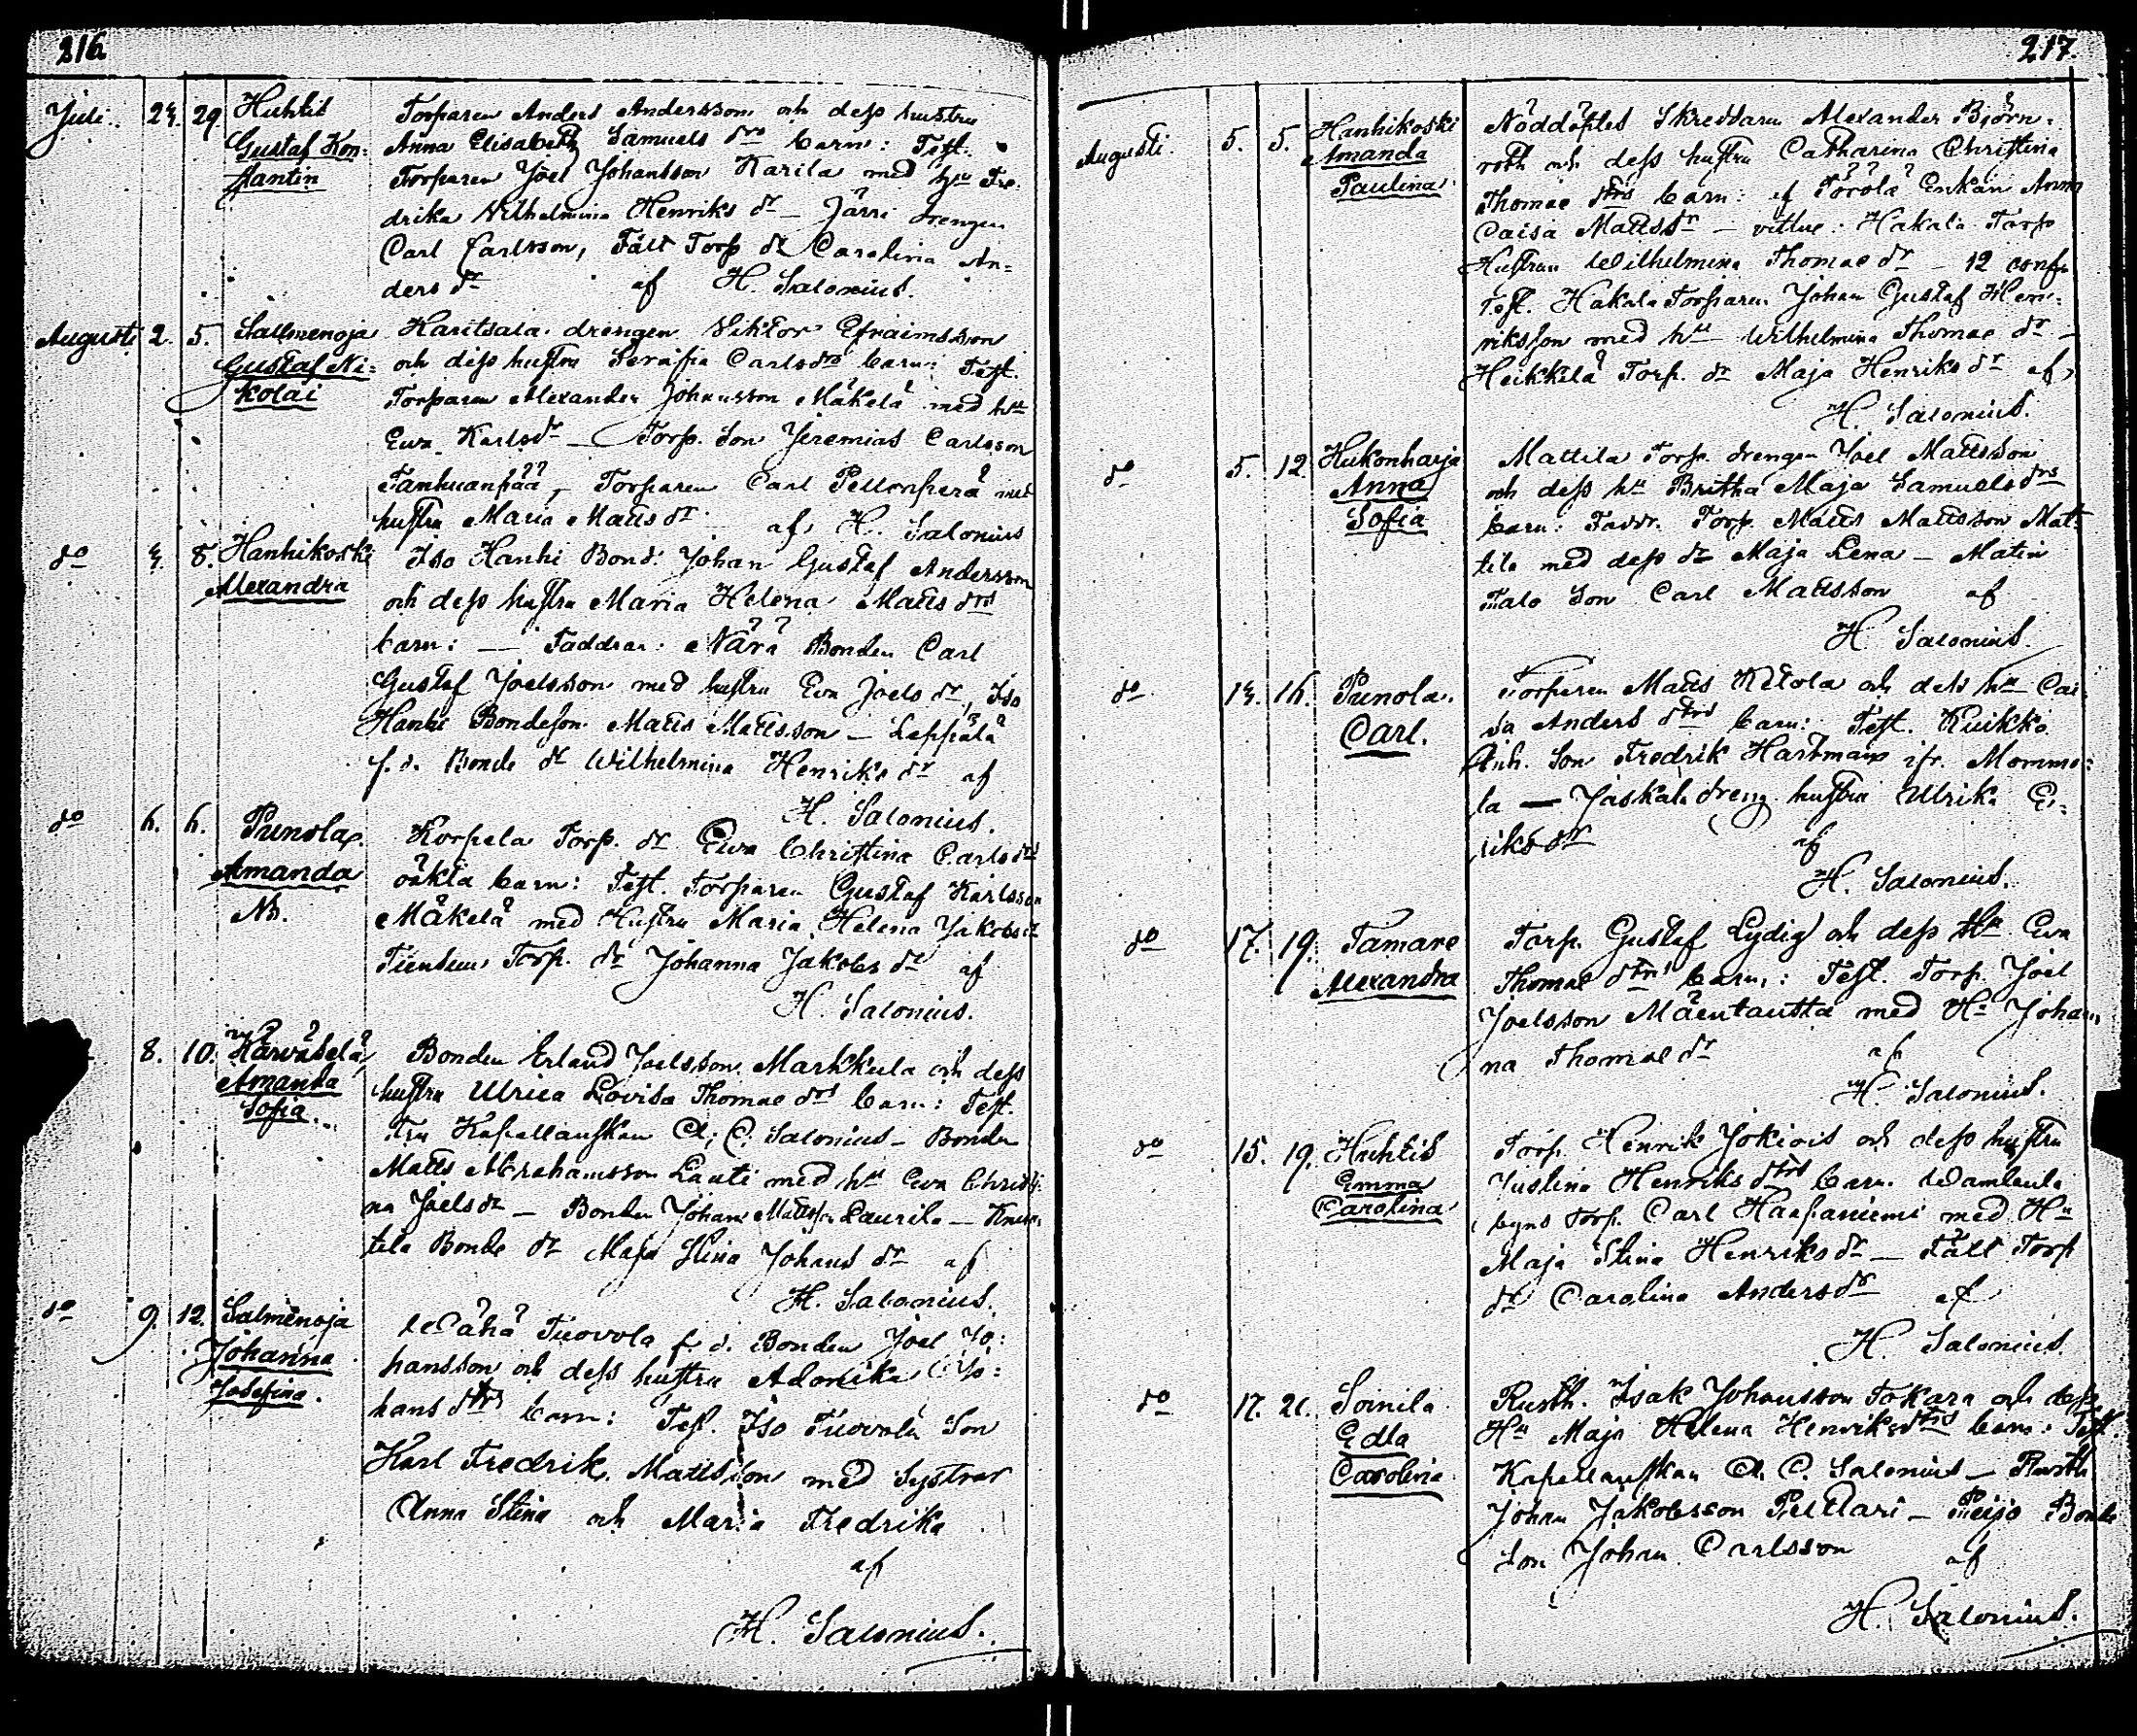 216
Juli. 24. 29. Huhtis Torparen Anders Andersson och dess hustru
Gustaf Kon= Anna Elisabeth Samuels drs barn: Test.
stantin Torparen Joel Johansson Karila med hu Fre
drika Wilhelmina Henriks dr — Järri drengen
Carl Carlsson, Fält Torp dr Carolina An=
ders dr af H. Salonius.
Augusti 2. 5. Sallmenoja Haritsala drengen Viktor Efraimsson
Gustaf Ni= och dess hustru Serafia Carls drs barn: Test.
kolai Torparen Alexander Johansson Mäkelä med hu
Eva Karls dr — Torp. Son Jeremias Carlsson
Tanhuanpää, — Torparen Carl Pellonperä med
hustru Maria Matts dr af H. Salonius
do 4. 8. Hanhikoski Iso Hanhi Bond. Johan Gustaf Andersson
Alexandra och dess hustru Maria Helena Matts drs
barn: — Faddrar: Närä Bonden Carl
Gustaf Joelsson med hustru Eva Joels dr, Iso
Hanhi Bondeson Matts Mattsson — Leppälä
f. d. Bonde dr Wilhelmina Henriks dr af
H. Salonius.
do 6. 6. Punola Korpela Torp. dr Eva Christina Carls drs
Amanda oäkta barn: Test. Torparen Gustaf Karlsson
Nb. Mäkelä med Hustru Maria Helena Jakobs dr
Torp. dr Johanna Jakobs dr af
H. Salonius.
8. 10. Härväselä, Bonden Erland Joelsson Markkula och dess
Amanda hustru Ulrica Lovisa Thomae drs barn: Test.
Sofia. Fru Kapellanskan A. C. Salonius — Bonden
Matts Abrahamsson Lauti med hu Eva Christi
na Joels dr — Bonden Johan Mattss. Laurila —
tila Bonde dr Maja Stina Johans dr af
H. Salonius.
do 9. 12. Salmenoja Wähä Tuovola f. d. Bonden Joel Jo:
Johanna hansson och dess hustru Adamika Jo:
Josefina. hans drs barn: Test. Iso Tuovola Son
Karl Fredrik Mattsson med Systrar
Anna Stina och Maria Fredrika
af
H. Salonius.
217.
Augusti. 5. 5. Hanhikoski Nöddöptes Skreddaren Alexander Björn:
Amanda roth och dess hustru Catharina Christina
Paulina Thomae drs barn: af Törölä Enkan Anna
Caisa Matts dr — vittne: Hakala Torp
Hustrun Wilhelmina Thomae dr — 12 conf.
Test. Hakala Torparen Johan Gustaf Hen:
riksson med hu Wilhelmina Thomae dr —
Heikkilä Torp. dr Maja Henriks dr af
H. Salonius.
do 5. 12. Hukonharja Mattila Torp. drengen Joel Mattsson
Anna och dess hu Britha Maja Samuels drs
Sofia barn: Faddr. Torp. Matts Mattsson Mat:
tila med dess dr Maja Lena — Matin
Talo Son Carl Mattsson af
H. Salonius.
do 14. 16. Punola. Torparen Matts Ketola och dess hu Cai
Carl. sa Anders drs barn: Test. Kuikko
Inh. Son Fredrik Hartman ifr. Momme:
la — Jaskala dreng hustru Ulrika E:
riks dr af
H. Salonius.
do 17. 19. Tamare Torp. Gustaf Lydig och dess Hu Eva
Alexandra Thomae drs barn: Test. Torp. Joel
Joelsson Mäentausta med Hu Johan
na Thomae dr af
H. Salonius.
do 15. 19. Huhtis Torp. Henrik Jokiois och dess hustru
Emma Justina Henriks drs barn. Wambula
Carolina byns Torp. Carl Haapaniemi med Hu
Maja Stina Henriks dr — Fält Torp
dr Carolina Anders dr af
H. Salonius.
do 17. 21. Soinila Rusth. Isak Johansson Tokara och dess
Edla Hu Maja Helena Henriks drs barn: Test.
Carolina Kapellanskan A. C. Salonius — Rusth
Johan Jakobsson Pelttari — Peijo Bonde
Son Johan Carlsson af
H. Salonius.